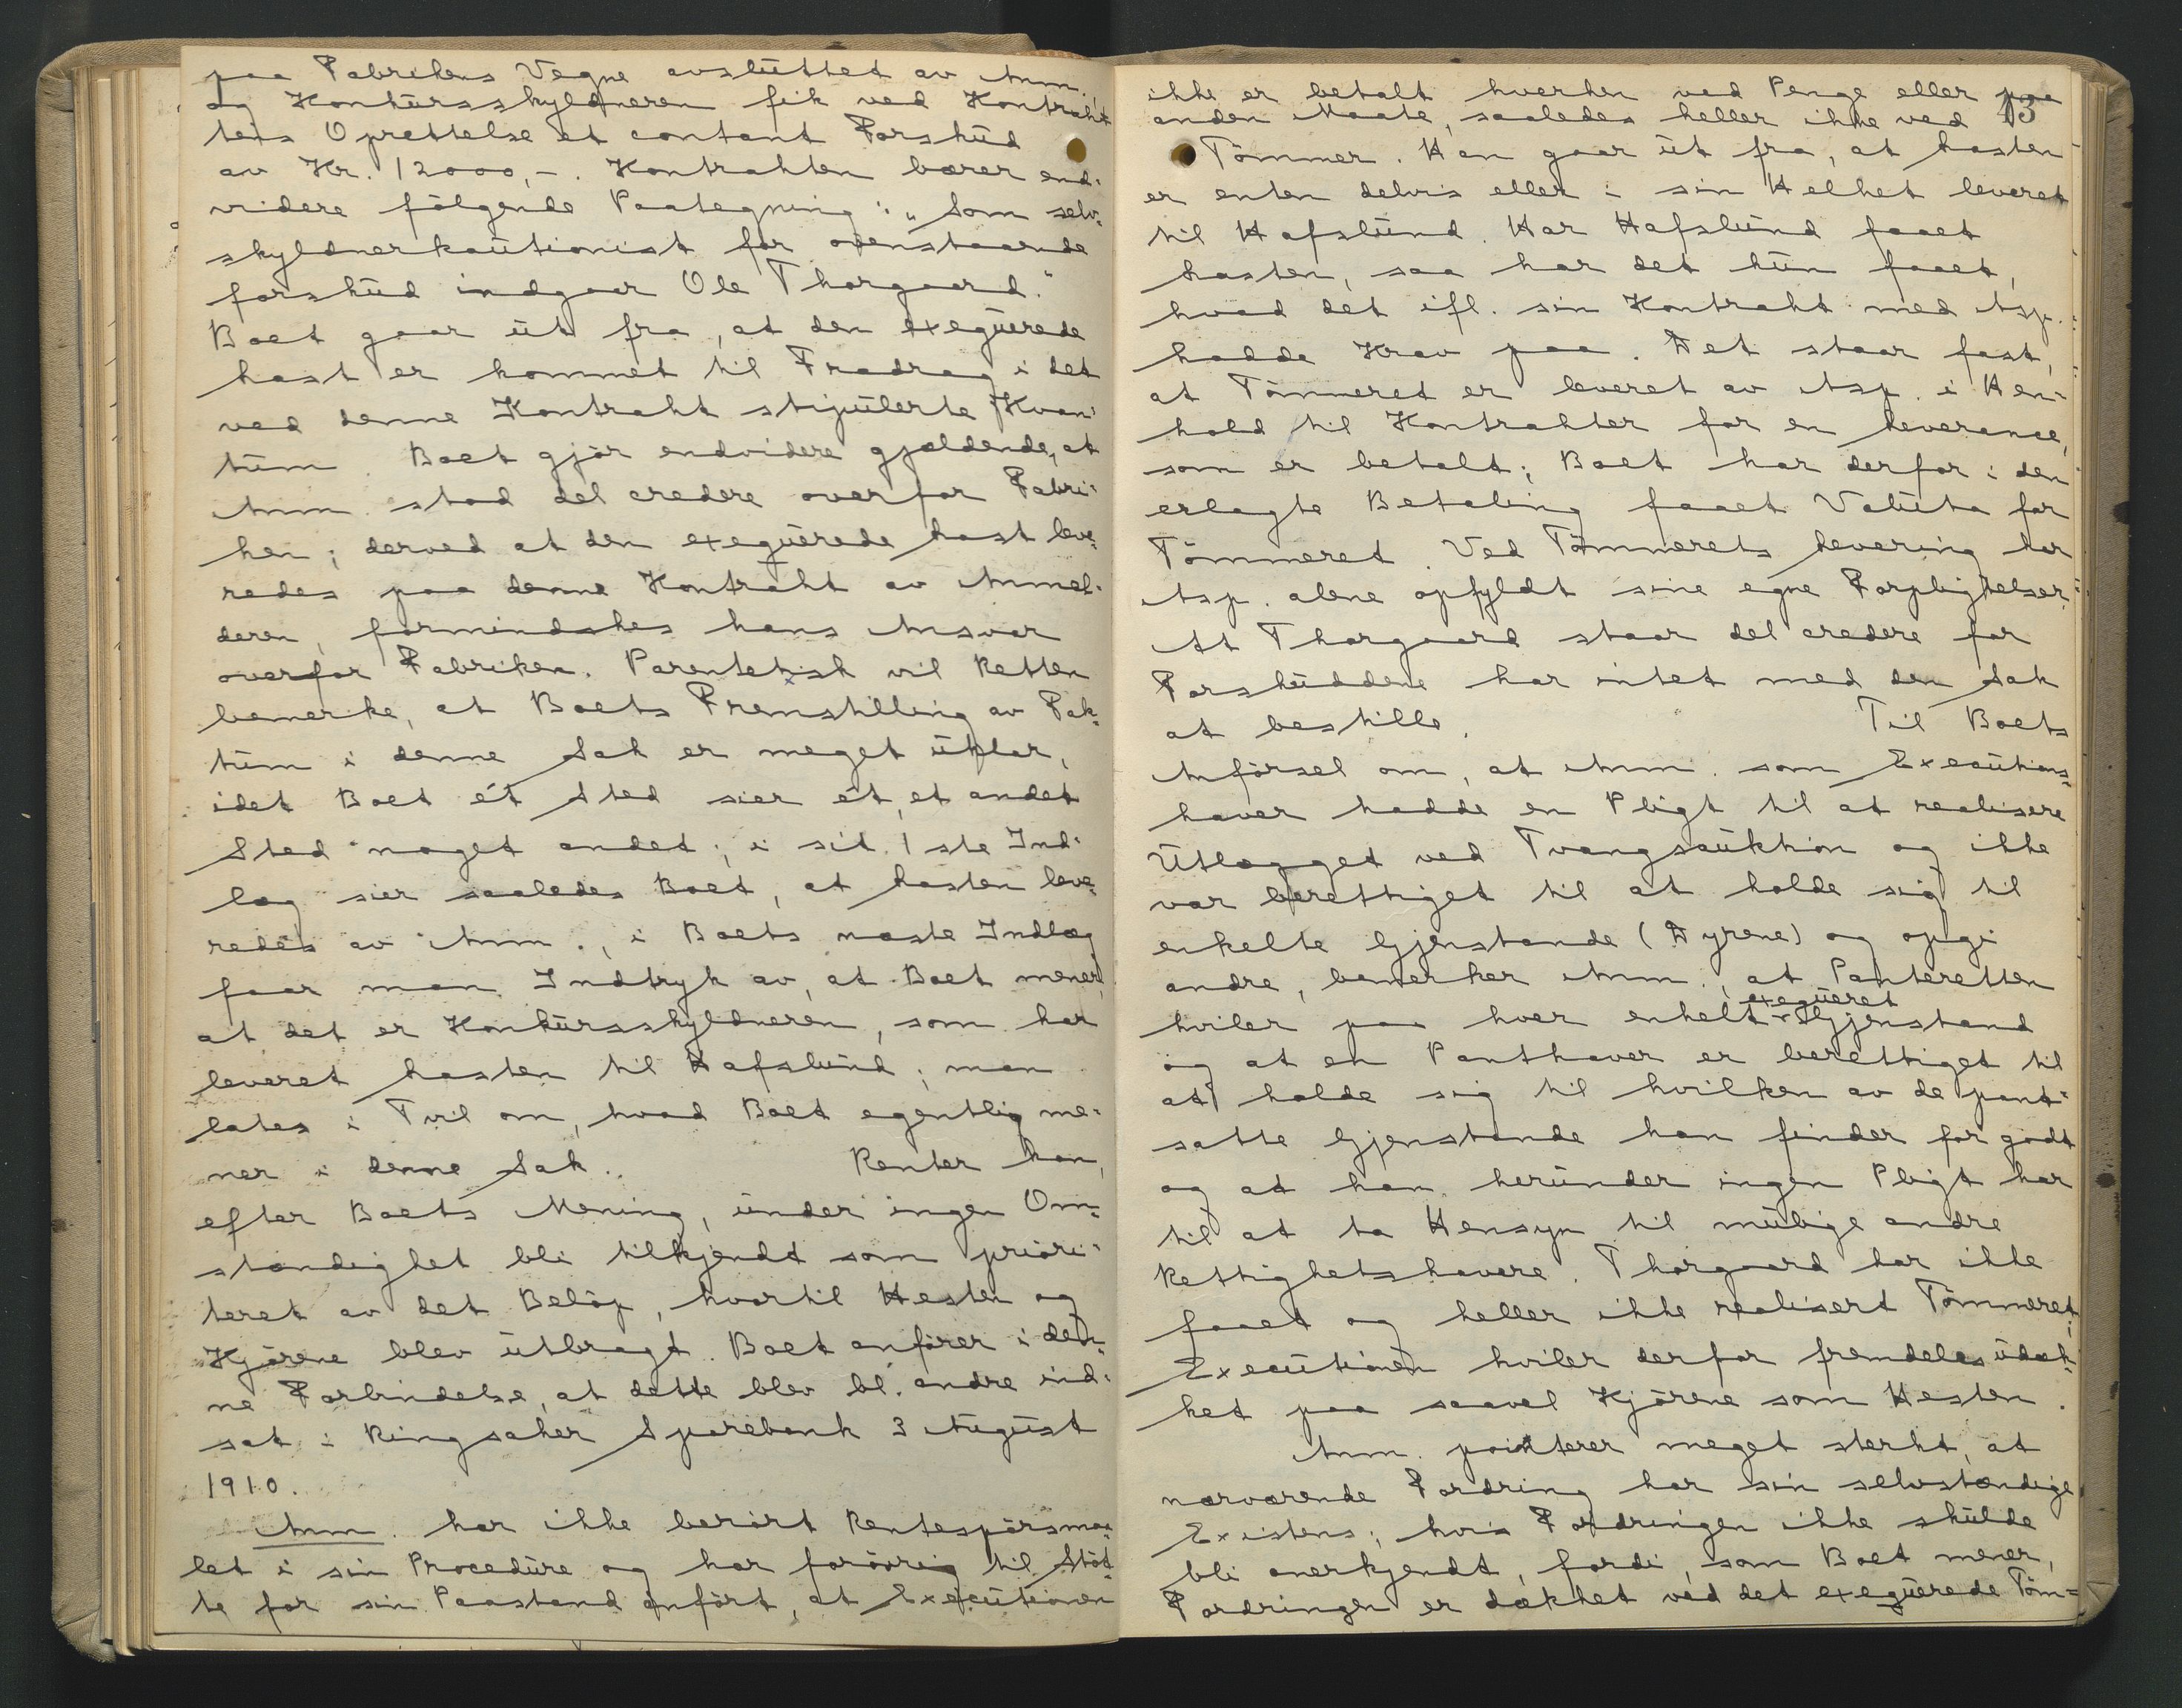 paa Fabrikens Vegne avsluttet av Anm.,
og Konkursskyldneren fik ved Kontrakt
tens Oprettelse et contant Forskud
av Kr. 12000,-. Kontrakten bærer end-
videre følgende Paategning: „Som selv-
skyldnerkautionist for ovenstaaende
forskud indgaar Ole Thorgaard."
Boet gaar ut fra, at den exeqüerede
Last er kommet til Fradrag i det
ved denne Kontrakt stipulerte Kvan-
tum. Boet gjør endvidere gjældende, at
Anm. stod del credere overfor Fabri-
ken; derved at den exeqüerede Last leve-
redes paa denne Kontrakt av Anmel-
deren, formindskes hans Ansvar
overfor Fabriken. Parentetisk vil Retten
bemerke, at Boets Fremstilling av Fak-
tum i denne Sak er meget uklar,
idet Boet ét Sted sier ét, et andet
Sted noget andet; i sit 1ste Ind-
læg sier saaledes Boet, at Lasten leve-
redes av Anm., i Boets næste Indlæg
faar man Indtryk av, at Boet mener,
at det er Konkursskyldneren, som har
leveret Lasten til Hafslund; man
lates i Tvil om, hvad Boet egentlig me-
ner i denne Sak. Renter kan,
efter Boets Mening, under ingen Om-
stændighet bli tilkjendt som priori-
teret av det Beløp, hvortil Hesten og
Kjørene blev utbragt. Boet anfører i den-
ne Forbindelse, at dette blev bl. andre ind-
sat i Ringsaker Sparebank 3 August
1910.
Anm. har ikke berørt Rentespørsmaa
let i sin Procedure og har forøvrig til Støt-
te for sin Paastand anført, at Executionen
43
ikke er betalt hverken ved Penge eller paa
anden Maate, saaledes heller ikke ved
Tømmer. Han gaar ut fra, at Lasten
er enten delvis eller i sin Helhet leveret
til Hafslund. Har Hafslund faaet
Lasten, saa har det kun faaet,
hvad det ifl. sin Kontrakt med Asp.
hadde Krav paa. Det staar fast,
at Tømmeret er leveret av Asp. i Hen-
hold til Kontrakter for en Leverance,
som er betalt; Boet har derfor i den
erlagte Betaling faaet Valuta for
Tømmeret. Ved Tømmerets Levering har
Asp. alene opfyldt sine egne Forpligtelser.
At Thorgaard staar del credere for
Forskuddene har intet med den Sak
at bestille. Til Boets
Anførsel om, at Anm. som Executions-
haver hadde en Pligt til at realisere
Utlægget ved Tvangsauktion og ikke
var berettiget til at holde sig til
enkelte Gjenstande (Dyrene) og opgi
andre, bemerker Anm., at Panteretten
hviler paa hver enkelt exeqüeret Gjenstand
og at en Panthaver er berettiget til
at holde sig til hvilken av de pant-
satte Gjenstande han finder for godt
og at han herunder ingen Pligt har
til at ta Hensyn til mulige andre
Rettighetshavere. Thorgaard har ikke
faaet og heller ikke realisert Tømmeret;
Executionen hviler derfor fremdeles udæk-
ket paa saavel Kjørene som Hesten.
Anm. pointerer meget sterkt, at
nærværende Fordring har sin selvstændige
Existens; hvis Fordringen ikke skulde
bli anerkjendt, fordi, som Boet mener,
Fordringen er dækket ved det exeqüerede Töm-